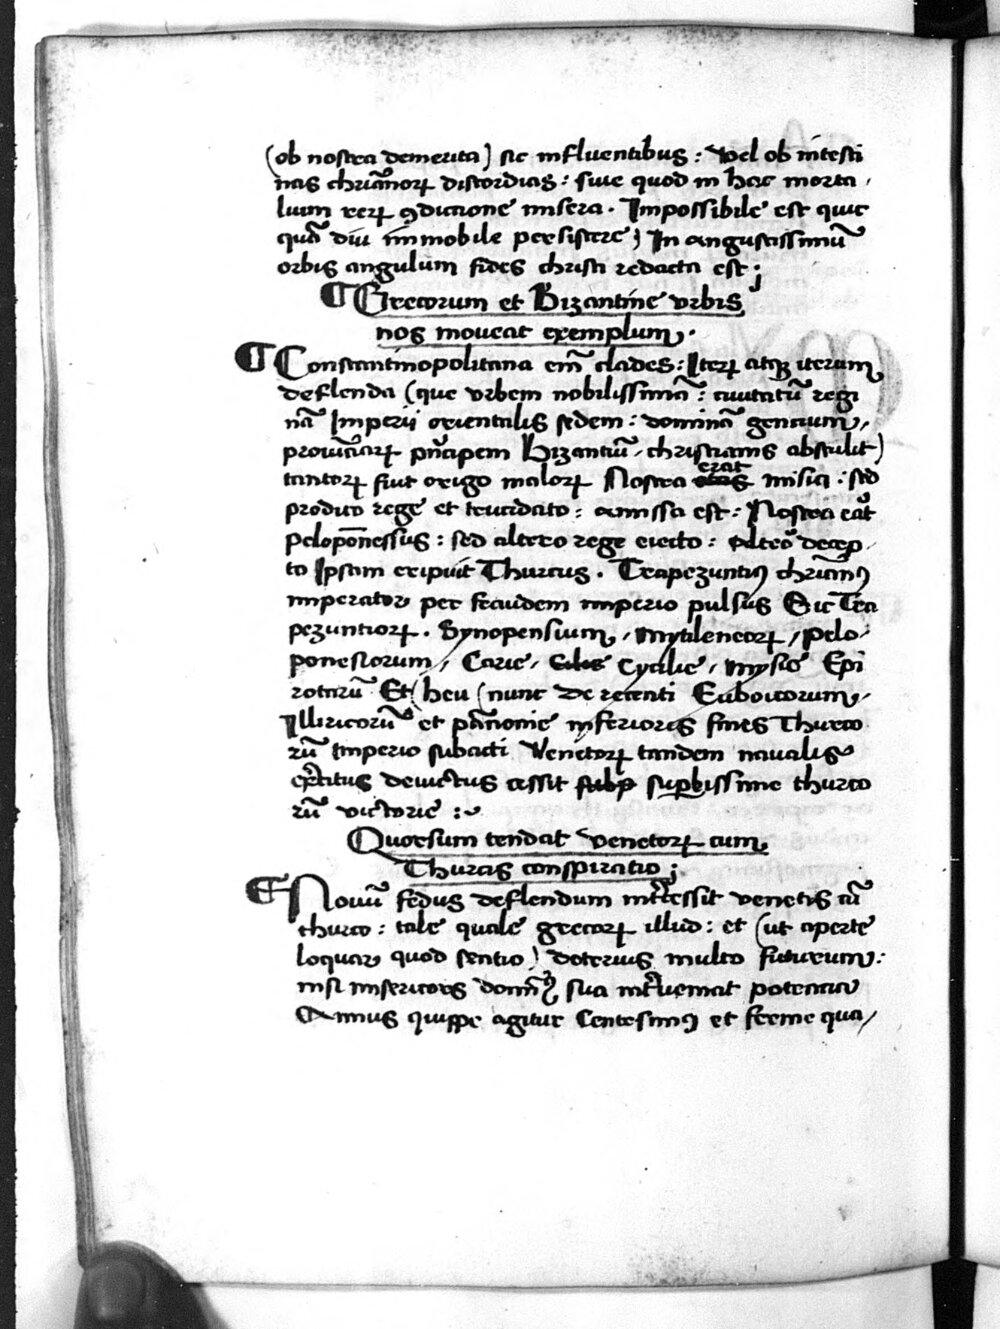 (ob nostra demerita) sic influentibus : Vel ob intesti
nas chrianoꝝ discordias : siue quod in hac morta
lium reꝝ ꝯditione misera . Impossibile est quic
quā diu immobile persistere) In angustissimū
orbis angulum fides christi redacta est ;
¶ Grecorum et Bizantine vrbis
nos moueat exemplum .
¶ Constantinopolitana em̄ clades : Iteꝝ atqꝫ iterum
deflenda (que vrbem nobilissimā : ciuitatū regi
nā Imperii orientalis sedem : dominā gentium ,
prouīciaꝝ pn̄cipem Bizantiū , christianis abstulit)
tantoꝝ fuit origo maloꝝ Nostra erat misia : sed
prodito rege et trucidato : amissa est : Nostra eāt
peloponessus : sed altero rege eiecto : altero decep
to Ipsam eripuit Thurcus . Trapezuntiꝰ chrianꝰ
imperator per secundem imperio pulsus Sic Tra
pezuntioꝝ . Synopensium , Mytileneoꝝ , Pelo
ponesiorum , Carie , Cycilie , Mysie Epi
rotarū Et (heu (nunc de recenti Euboicorum ,
Illiricorū et pānonie inferioris fines Thurco
rū Imperio subacti Venetoꝝ tandem naualis
exercitus deuictus cessit superbissime thurco
rū victorie :
Quorsum tendat venetoꝝ cum
Thurcis conspiratio ;
¶ Nouū fedus deflendum intercessit venetis cū
thurco : tale quale grecoꝝ illud : et (ut aperte
loquar quod sentio) deterius multo futurum :
nisi misericors domīꝰ sua interueniat potentia
Annus quippe agitur Centesimꝰ et ferme qua